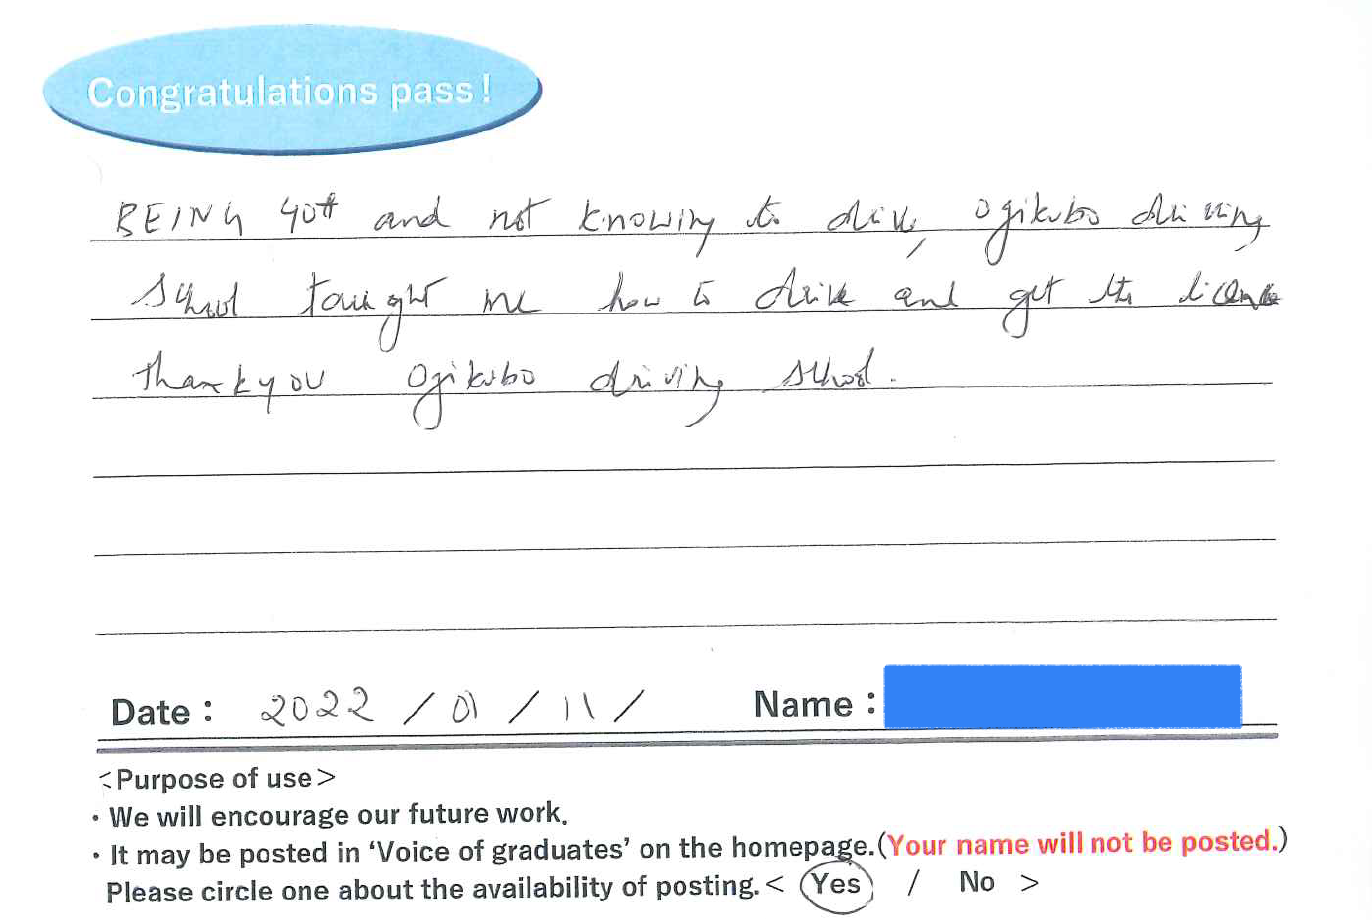 Congratulations pass!
BEING 40th and not knowing to drive, Ogikubo driving
school taught me how to drive and get the license
thankyou Ogikubo driving school.
Date : 2022 / 01 / 11 / Name :
<Purpose of use>
・We will encourage our future work.
・It may be posted in ‘Voice of graduates’ on the homepage.(Your name will not be posted.)
Please circle one about the availability of posting.< Yes / No >